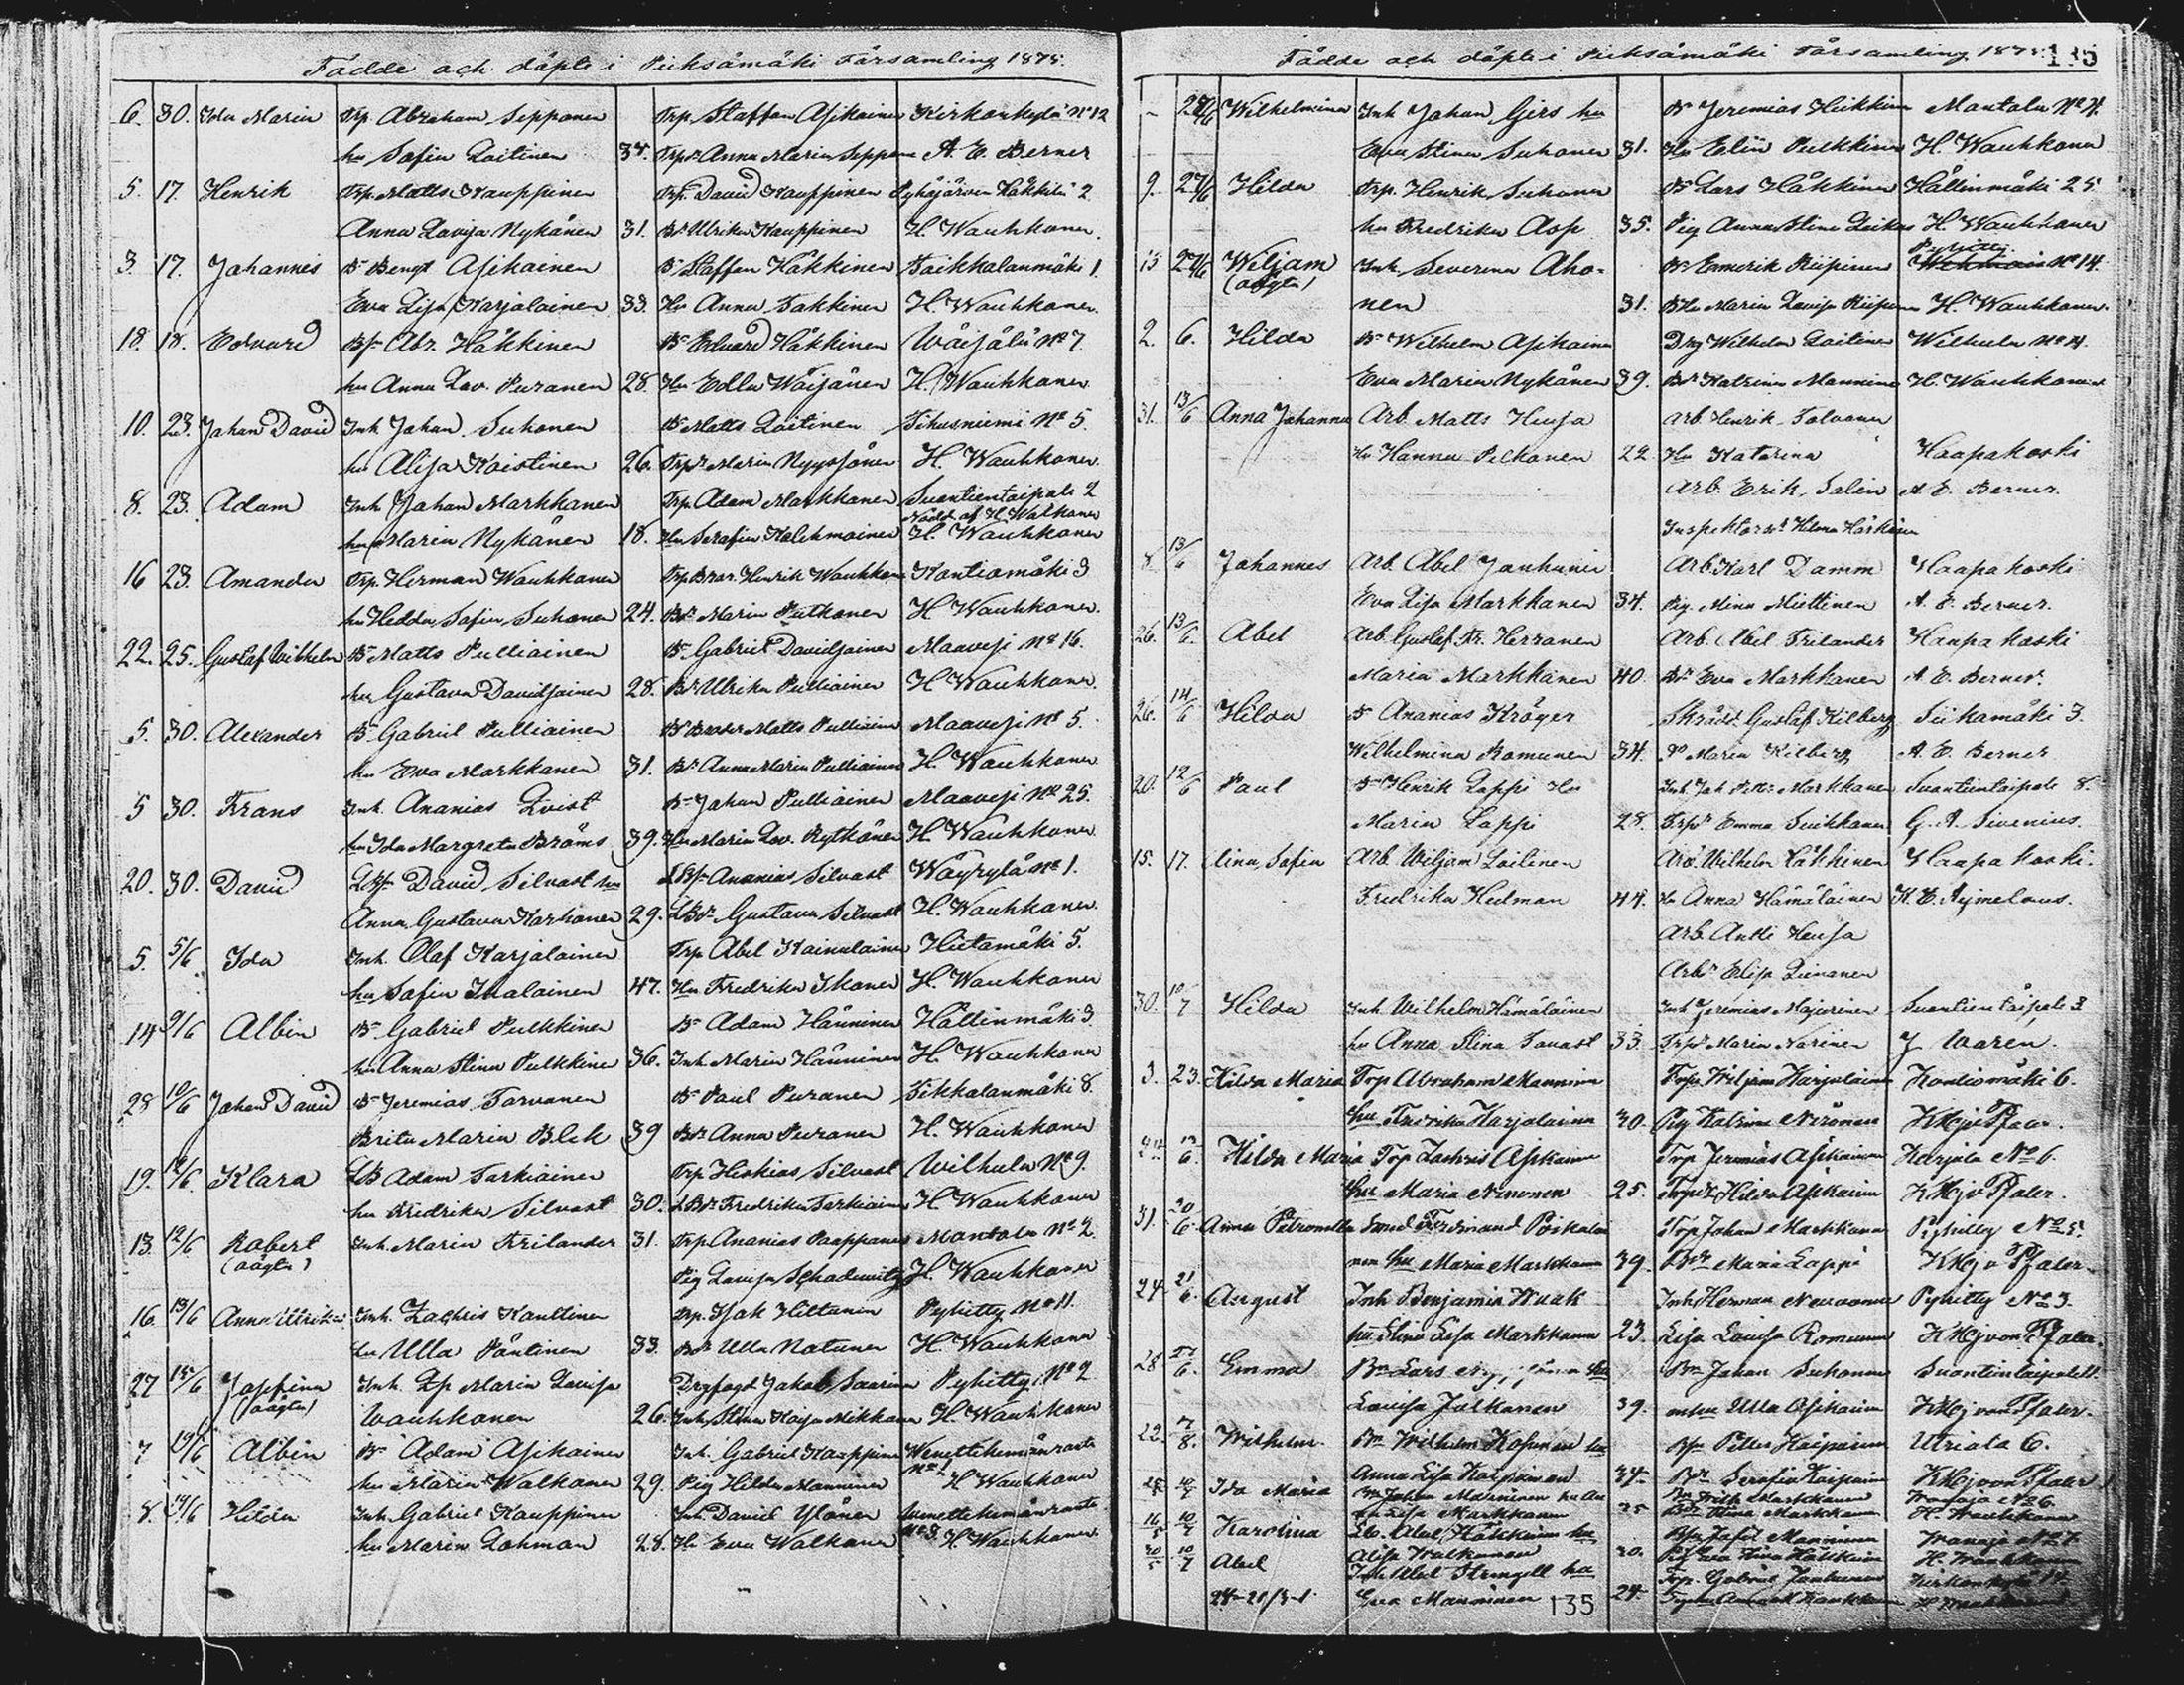 Födde och döpte i Pieksämäki Församling 1878.
6. 30. Ida Maria Trp. Abraham Seppänen Trp. Staffan Asikainen Kirkonkylä No 12
hu Sofia Laitinen 37. Trpdr Anna Maria Seppänen A. E. Berner
5. 17. Henrik Trp. Matts Kauppinen Trp. David Kauppinen Pyhäjärvi Häkkilä 2
Anna Lovisa Nykänen 31. Bdr Ulrika Kauppinen H. Wauhkonen
3. 17. Johannes B. Bengt Asikainen B. Staffan Häkkinen Paikkalanmäki 1.
Eva Lisa Karjalainen 33. Hu Anna Häkkinen H. Wauhkonen
18. 18. Edvard Bsn Abr. Häkkinen Bn Edvard Häkkinen Wäisälä No 7
hu Anna Lov. Puranen 28. Hu Edla Wäisänen H. Wauhkonen
10. 23. Johan David Inh. Johan Suhonen Bn Matts Laitinen Sihusniemi No 5.
hu Alisa Koistinen 26. Trpdr Maria Nyyssönen H. Wauhkonen
8. 23. Adam Inh Johan Markkanen Trp. Adam Markkanen Suontientaipale 2
Nöddöpt af H. Walkonen
hu Maria Nykänen 18. Hu Serafia Kolehmainen H. Wauhkonen
16 23. Amanda Trp. Herman Wauhkonen Trp Bror. Henrik Wauhkonen Kontiomäki 3
hu Hedda Sofia Suhonen 24. Bdr Maria Putkonen H. Wauhkonen
22. 25. Gustaf Wilhelm Bn Matts Pulliainen Bn Gabriel Davidsainen Maavesi No 16.
hu Gustava Davidsainen 28. Bdr Ulrika Pulliainen H. Wauhkonen
5. 30. Alexander B. Gabriel Pulliainen Bn Broder Matts Pulliainen Maavesi No 5.
hu Eva Markkanen 31. Bdr Anna Maria Pulliainen H. Wauhkonen
5 30. Frans Inh. Ananias Qvist Bn Johan Pulliainen Maavesi No 25.
hu Ida Margreta Bröms 39. Hu Maria Lov. Rytkönen H. Wauhkonen
20. 30. David LBsn David Silvast hu LBsn Ananias Silvast Wäyrylä No 1.
Anna Gustava Korhonen 29. LBdr Gustava Silvast H. Wauhkonen
5. 5/6 Ida Inh. Olaf Karjalainen Trp Abel Kainulainen Hietamäki 5.
hu Sofia Inalainen 47. Hu Fredrika Ikonen H. Wauhkonen
14 9/6 Albin Bn Gabriel Pulkkinen Bn Adam Hänninen Hällinmäki 3
hu Anna Stina Pulkkinen 36. Inh. Maria Hänninen H. Wauhkonen
28 10/6 Johan David Bn Jeremias Tarvonen Bn Paul Puranen Sikkalanmäki 8.
Brita Maria Blek 39 Bdr Anna Puranen H. Wauhkonen
19. 12/6 Klara LB Adam Tarkiainen Trp Heskias Silvast Wilhula No 9.
hu Fredrika Silvast 30. LBdr Fredrika Tarkiainen H. Wauhkonen
13. 12/6 Robert Inh. Maria Frilander 31. Trp. Ananias Paappanen Montola No 2
(oägta) Pig Lovisa Schadewitz H. Wauhkonen
16. 13/6 Anna Ulrika Inh. Zachris Kanttinen Trp. Isak Hiltunen Pyhitty No 11.
hu Ulla Päntinen 33. Bdr Ulla Natunen H. Wauhkonen
27 15/6 Josefina Inh. Lp Maria Lovisa Drgfogd Jakob Saarinen Pyhitty No 2
(oägta) Wauhkonen 26. Inh. Stina Kajsa Mikkonen H. Wauhkonen
7 19/6 Albin Bn Adam Asikainen Inh. Gabriel Kauppinen Wenettekemänranta No 2
hu Maria Walkonen 29. Pig Hilda Manninen H. Wauhkonen
8. 19/6 Hilda Inh. Gabriel Kauppinen Inh. David Ylönen Wenettekemänranta
hu Maria Lohman 28. Hu Eva Walkonen No 3. H. Wauhkonen
Födde och döpte i Pieksämäki Församling 1878. 135
27/6 Wilhelmina Inh Johan Giers hu Bn Jeremias Heikkinen Montola No 4.
Eva Stina Suhonen 31. Hu Elin Pulkkinen H. Wauhkonen
9. 27/6 Hilda Trp. Henrik Suhonen Bn Lars Häkkinen Hällinmäki 25
hu Fredrika Aop 35. Pig Anna Stina H. Wauhkonen
15 27/6 Weljam Inh. Severina Aho- Bn Enmerik Riipinen Pyhitty No 14.
(oägta) nen 31. BHu Maria Lovisa Riipinen H. Wauhkonen.
2. 6. Hilda Bn Wilhelm Asikainen Drg Wilhelm Laitinen Wilhula No 4.
Eva Maria Nykänen 39. Bdr Katrina Manninen H. Wauhkonen
31. 13/6 Anna Johanna Arb. Matts Heusa Arb. Henrik Tolvanen
Hu Hanna Pelkonen 22. Hu Katarina Haapakoski
Arb. Erik Salin A. E. Berner.
Inspektorsdr Hilma Häkkinen
8 13/6 Johannes Arb. Abel Jauhunen Arb. Karl Damm Haapakoski
Eva Lisa Markkanen 34. Pig. Mina Miettinen A. E. Berner.
26. 13/6 Abel Arb. Gustaf Fr. Herranen Arb. Abel Frilander Haapakoski
Maria Markkanen 40. Bdr Eva Markkanen A. E. Berner.
26. 14/6 Hilda Bn Ananias Kröger Skrädd. Gustaf Kilberg Siikamäki 3.
Wilhelmina Romunen 34. Do Maria Kilberg A. E. Berner
20. 12/6 Paul Bn Henrik Lappi Hu Inh Joh. Petter Markkanen Suontientaipale 8.
Maria Lappi 28. Trpdr Emma Suhkonen G. A. Sivenius.
15. 17. Aina Sofia Arb. Wiljam Laitinen Arb. Wilhelm Häkkinen Haapakoski.
Fredrika Hedman 44. Hu Anna Hämäläinen K. E. Aejmelaus.
Arb. Antti Heusa
Arbdr Elisa Liimanen
30. 10/7 Hilda Inh. Wilhelm Hämäläinen Inh. Jeremias Majurinen Suontientaipale 3
hu Anna Stina Tavast 33. Trpdr Maria Narinen J. Warén.
3. 23. Hilda Maria Trp Abraham Manninen Trp. Wiljam Karjalainen Kontiomäki 6.
hu Fredrika Karjalainen 30. Pig Katrina Nironen KHj v Pfaler.
24. 13/6 Hilda Maria Trp Zachris Asikainen Trp Jeremias Asikainen Harjula No 6.
hu Maria Ninonen 25. Trpdr Hilda Asikainen KHj v Pfaler.
31. 20/6 Anna Petronella Smed Ferdinand Poikolai- Trp Johan Markkanen Pyhitty No 5.
nen hu Maria Markkanen 39. Bdr Maria Lappi KHj v Pfaler.
24. 21/6 August Inh Benjamin Kuak Inh Herman Neuvonen Pyhitty No 3.
hu Stina Lisa Markkanen 23. Lisa Lovisa Romunen KHj von Pfaler.
28. 27/6 Emma Bn Lars Nyyssönen hu Bn Johan Suhonen Suontientaipale 11.
Lovisa Julkunen 39. Ulla Asikainen KHj von Pfaler.
22. 7/8. Wilhelm Bn Wilhelm Kosunen hu Bsn Petter Kaipainen Utriala 6.
Anna Lisa Kaipainen 34. Bdr Serafia Kaipainen KHj von Pfaler
Ida Maria Bn Johan Manninen Bn Wilh Markkanen No 6.
Lisa Markkanen 35 Bdr Stina Markkanen H. Wauhkonen
16/5 10/7 Karolina Abel Häkkinen hu Manninen No 27.
Alisa Walkonen 30. Pig Eva Stina Häkkinen H. Wauhkonen
30/5 10/7 Abel Inh Abel Strengell hu Trp. Gabriel Kirkonkylä 14
24-21/3-1 Eva Manninen 24. H. Wauhkonen
135